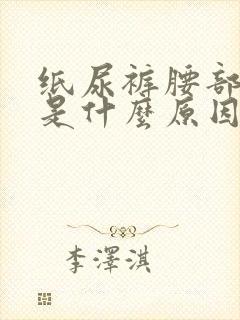 纸尿裤腰部
是什麼原因
李澤淇